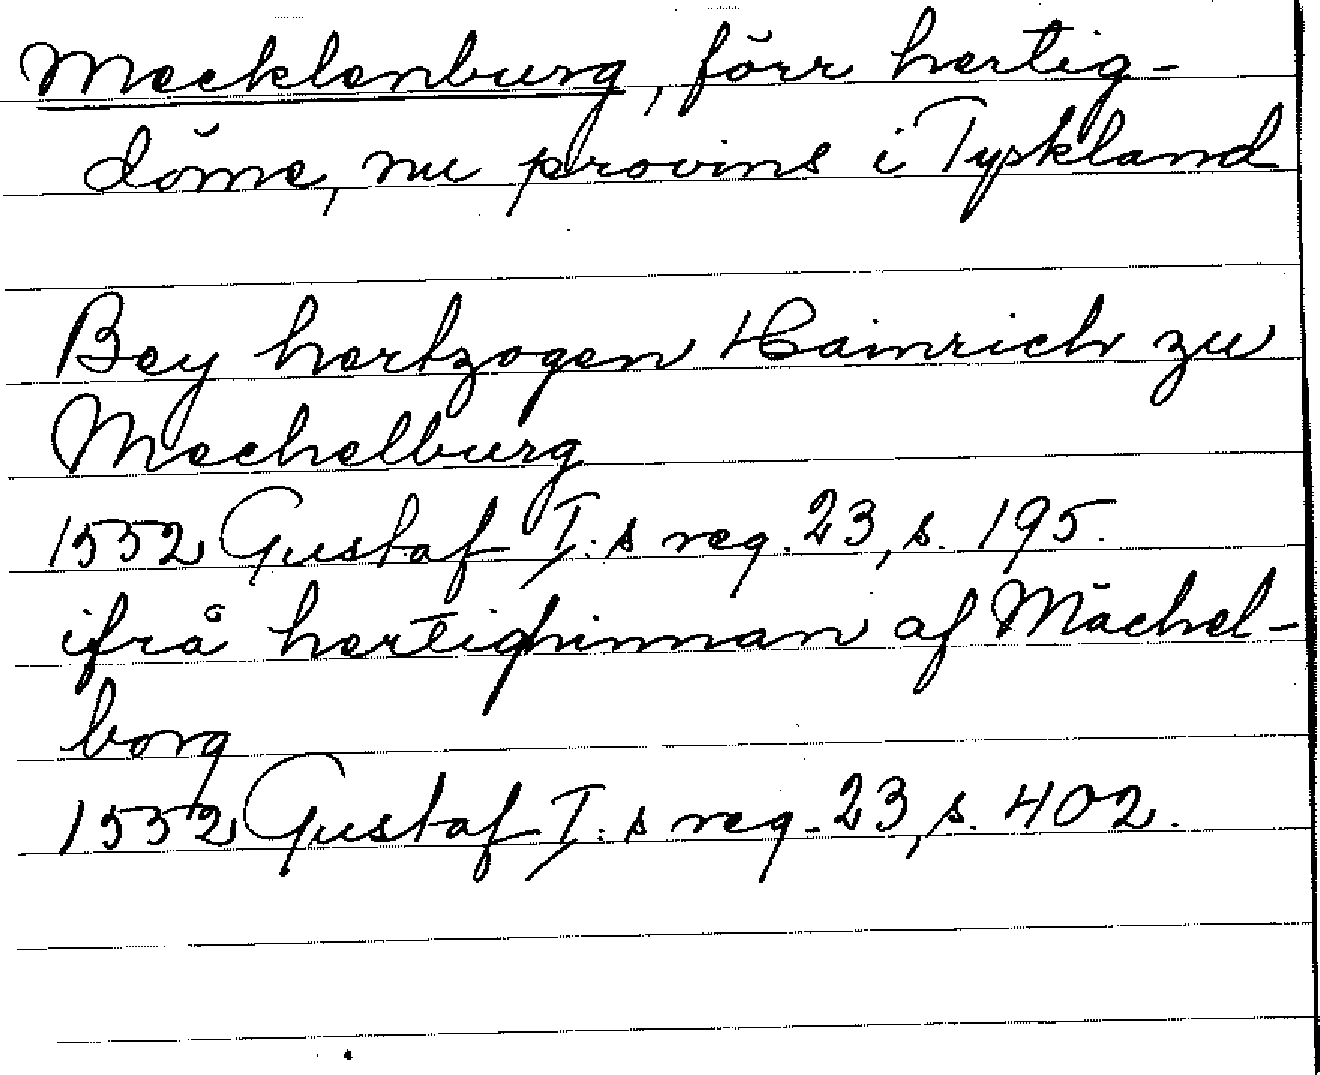 Mecklenburg, förr hertig-
döme, nu provins i Tyskland
Bey hertzogen Hainrich zu
Mechelburg
1552 Gustaf I:s reg. 23, s. 195.
ifrå hertighinnan af Mächel-
borg
1552 Gustaf I:s reg. 23, s. 402.